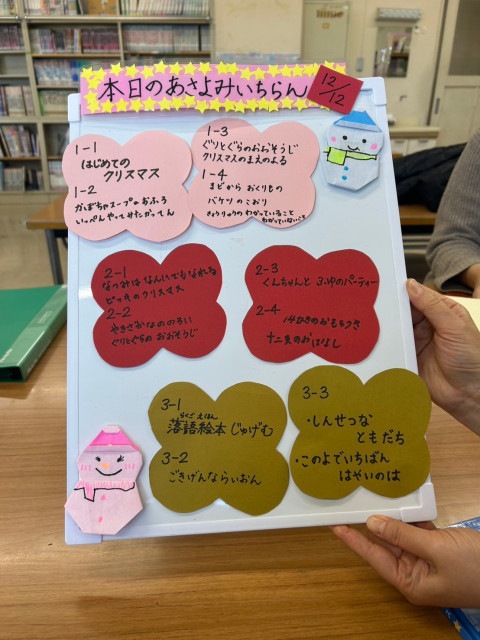 本日のあさよみいちらん
12/12
1-1
はじめての
クリスマス
1-2
かぼちゃスープのおふろ
いっぺんやってみたかってん
1-3
ぐりとぐらのおおそうじ
クリスマスのまえのよる
1-4
まどから おくりもの
バケツ のこおり
きょうりゅうの わかっていること
わかっていないこと
2-1
なつみはなんにでもなれる
のクリスマス
2-2
やきざかなののろい
ぐりとぐらの おおそうじ
2-3
くんちゃんと ふゆのパーティー
2-4
14ひきのおもちつき
十二支のおはなし
3-1
らくご えほん
落語絵本 じゅげむ
3-2
ごきげんならいおん
3-3
・しんせつな
ともだち
・このよでいちばん
はやいのは